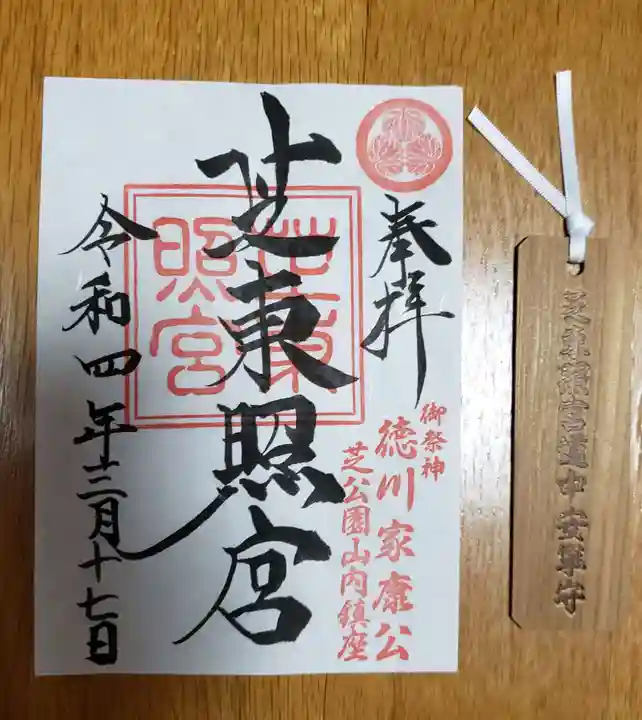 奉拝
御祭神
徳川家康公
芝公園山内鎮座
芝東照宮
芝東
照宮
令和四年十二月十七日
芝東照宮道中安全守